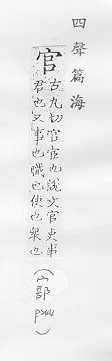 四聲篇海
官
古九切官宦也說文官吏事
君也又事也職也使也衆也
(宀部
P344)